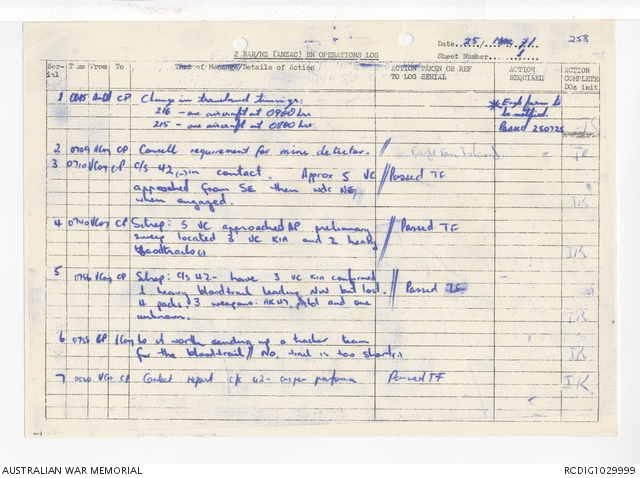 258
Date 25 / Mar / 71
2 RAR/NZ (ANZAC) BN OPERATIONS LOG
Sheet Number 1
Ser-ial Time From To Text of Message/Details of Action ACTION TAKEN OR REF TO LOG SERIAL ACTION REQUIRED ACTION COMPLETE DOs init
1 0045 CP Change in trooplond timings:
216 - one aircraft at 0900 hrs
215 - one aircraft at 0800 hrs
to be notified.
Passed 250725
2 0709 CP Cancell requirement for mine detector. Eagle Farm IK
3 0710 VCoy CP C/S 42 (-) in contact. Approx 5 VC // Passed TF
approached from SE then wdr NE
when engaged. IK
4 0740 VCoy CP Sitrep: 5 VC approached AP preliminary // Passed TF
sweep located 3 VC KIA and 2 heavy
bloodtrails IK
5 0756 VCoy CP Sitrep: C/S 42 - have 3 VC KIA confirmed // Passed TF
1 heavy bloodtrail leading NW but lost.
4 packs. 3 weapons: AK47, pistol and one
unknown. IK
6 0755 CP VCoy Is it worth sending up a tracker team
for the bloodtrail // No, trail is too short. IK
7 VCoy CP Contact report C/S 42 - on proforma Passed TF IK
AUSTRALIAN WAR MEMORIAL
RCDIG1029999